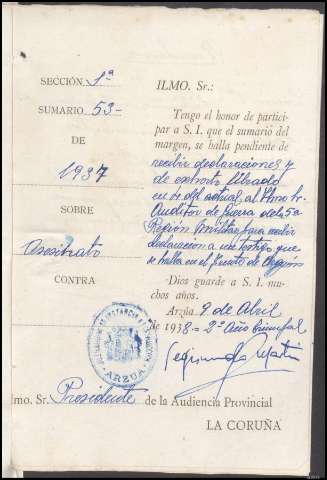 SECCIÓN 1ª
SUMARIO 53-
DE
1937
SOBRE
Asesinato
CONTRA
ILMO. Sr.:
Tengo el honor de partici-
par a S. I. que el sumario del
margen, se halla pendiente de
recibir declaraciones y
de exhorto librado
en del actual, al Iltmo Sr.
Auditor de Guerra de la 5ª
Región Militar, para recibir
declaración a un testigo que
se halla en el frente de Aragón
Dios guarde a S. I. mu-
chos años.
Arzúa 9 de Abril
de 1938- 2º Año triunfal
ARZUA
lmo. Sr. Presidente de la Audiencia Provincial
LA CORUÑA